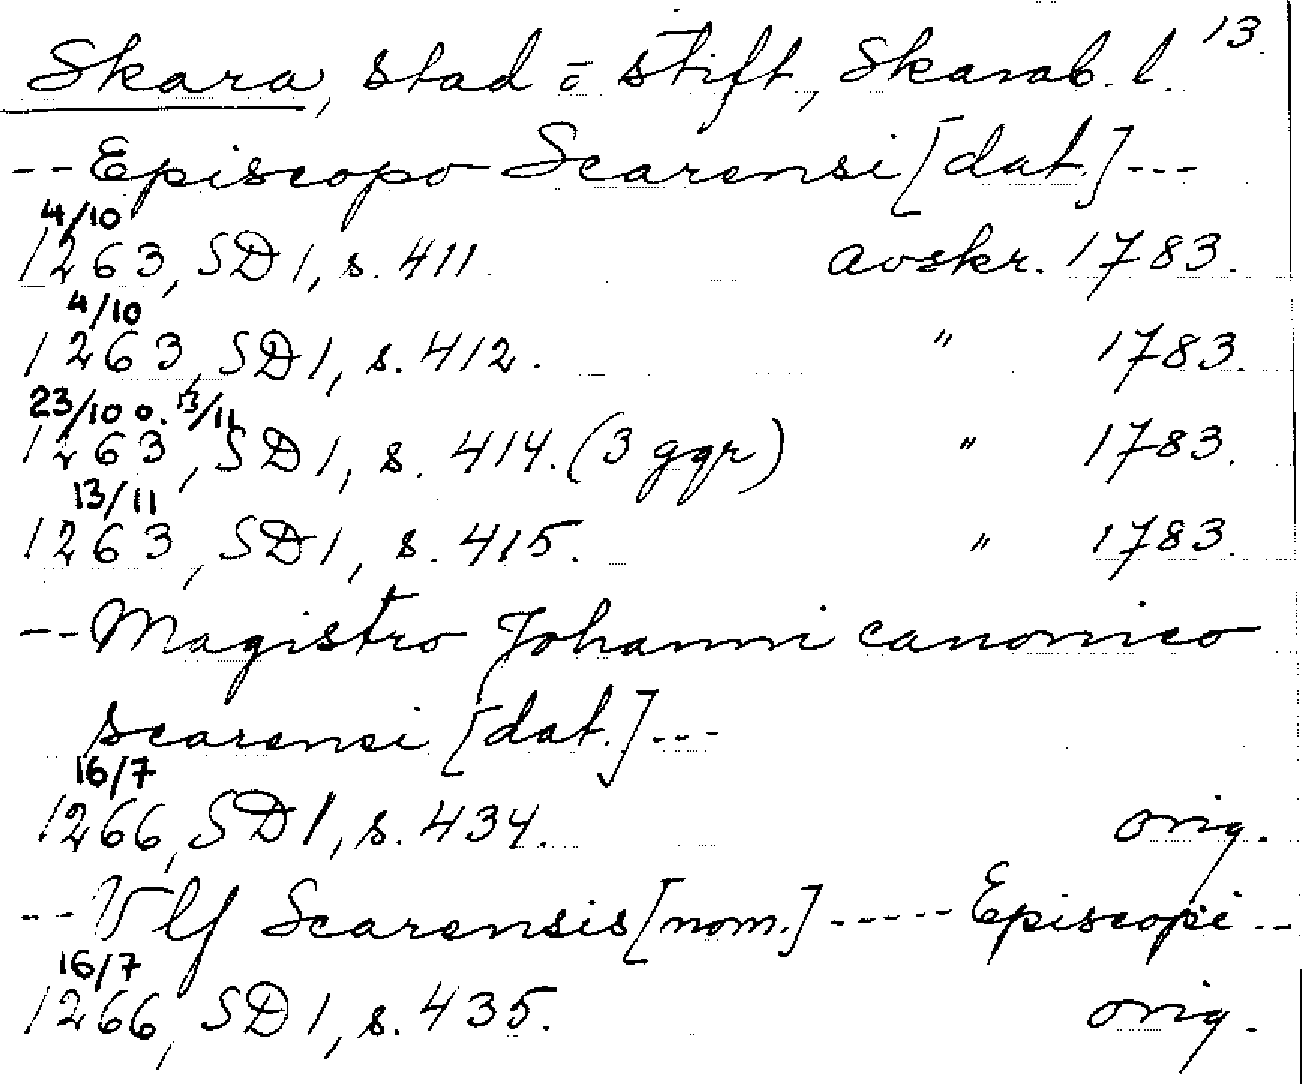 Skara, stad o stift, Skarab. l. 13.
-- Episcopo Scarensi [dat.] ---
4/10
1263, SD 1, s. 411. avskr. 1783.
4/10
1263, SD 1, s. 412. " 1783.
23/10 o. 13/11
1263, SD 1, s. 414. (3 ggr) " 1783.
13/11
1263, SD 1, s. 415. " 1783.
-- Magistro Johanni canonico
scarensi [dat.] ---
16/7
1266, SD 1, s. 434. orig.
--- Vlf Scarensis [nom.] ----- Episcopi --
16/7
1266, SD 1, s. 435. orig.